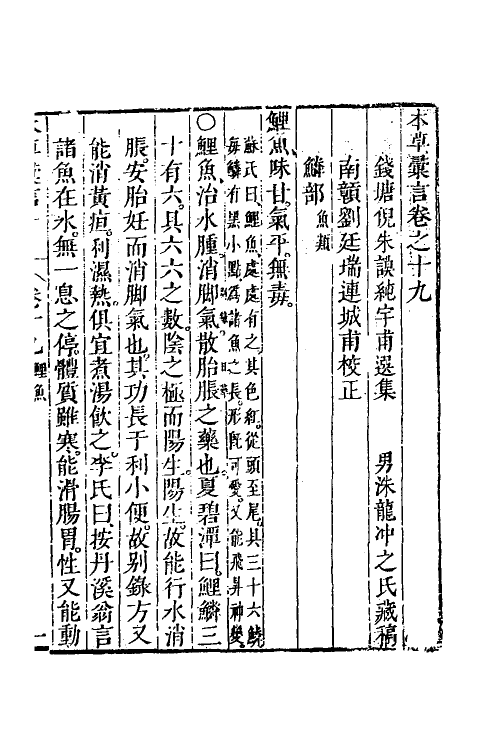 本草彙言卷之十九
錢塘倪朱謨純宇甫選集　男洙龍冲之氏藏稿
南贛劉廷瑞連城甫校正
鱗部 魚類
鯉魚味甘氣平無毒
蘇氏曰鯉魚處處有之其色紅從頭至尾具三十六鱗
每鱗有黑小點爲諸魚之長形既可愛又能飛昇神變
○鯉魚治水腫消脚氣散胎脹之藥也夏碧潭曰鯉鱗三
十有六具六六之數陰之極而陽生陽生故能行水消
脹安胎妊而消脚氣也其功長于利小便故别錄方又
能消黃疸利濕熱俱宜煮湯飲之李氏曰按丹溪翁言
諸魚在水無一息之停體質雖寒能滑腸胃性又能動
本草彙言 卷十九 鯉魚 一